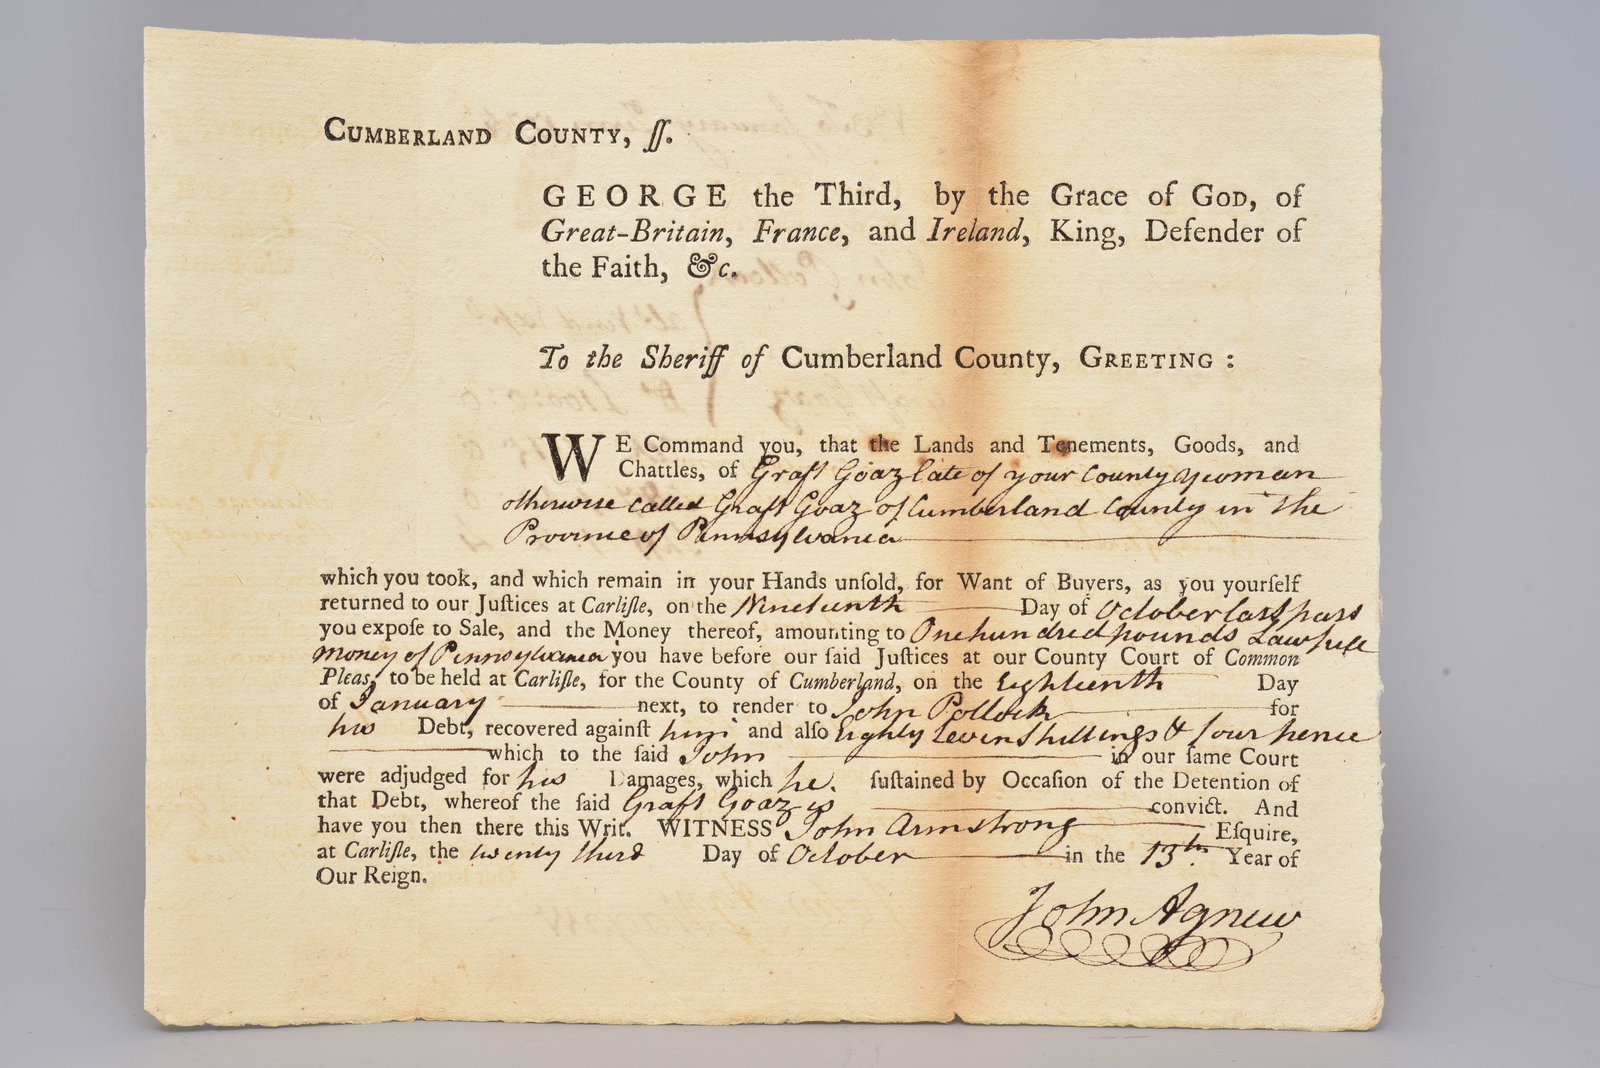 CUMBERLAND COUNTY, ſſ.
GEORGE the Third, by the Grace of GOD, of
Great-Britain, France, and Ireland, King, Defender of
the Faith, &c.
To the Sheriff of Cumberland County, GREETING:
WE Command you, that the Lands and Tenements, Goods, and
Chattles, of Graft Goaz late of your County yeoman
otherwise called Graft Goaz of Cumberland County in the
Province of Pennsylvania
which you took, and which remain in your Hands unſold, for Want of Buyers, as you yourſelf
returned to our Juſtices at Carliſle, on the Nineteenth Day of October last past
you expoſe to Sale, and the Money thereof, amounting to One hundred pounds Lawfull
money of Pennsylvania you have before our ſaid Juſtices at our County Court of Common
Pleas, to be held at Carliſle, for the County of Cumberland, on the Eighteenth Day
of January next, to render to John Pollock for
his Debt, recovered againſt him and alſo Eighty Seven Shillings & four pence
which to the ſaid John in our ſame Court
were adjudged for his Damages, which he. ſuſtained by Occaſion of the Detention of
that Debt, whereof the ſaid Graft Goaz is convict. And
have you then there this Writ. WITNESS John Armstrong Eſquire,
at Carliſle, the twenty third Day of October in the 13th. Year of
Our Reign.
John Agnew